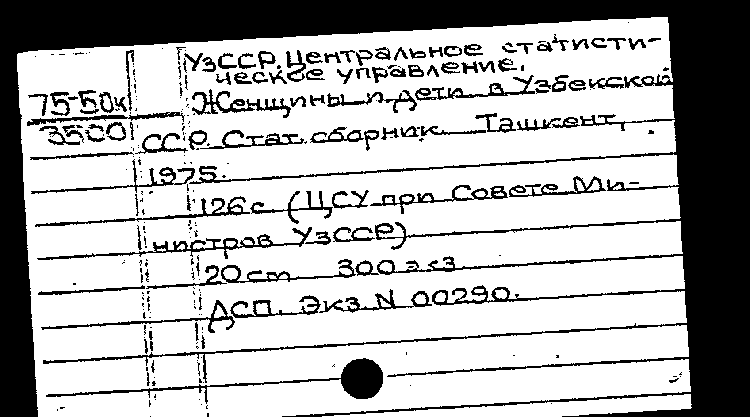 УзССР. Центральное статисти-
ческое управление.
75-50к
3500
Женщины и дети в Узбекской
ССР. Стат. сборник. Ташкент,
1975.
126 с (ЦСУ при Совете Ми-
нистров УзССР)
20 cm 300 экз
ДСП. Экз N 00290.